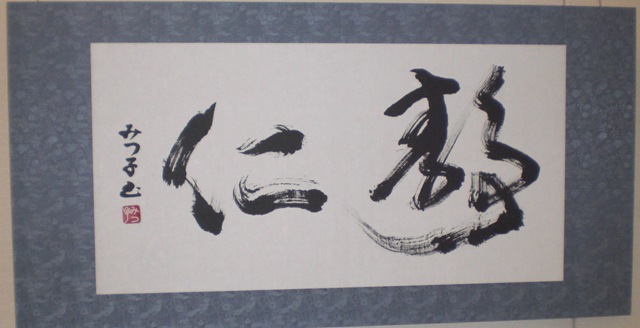 静仁
みつ子書